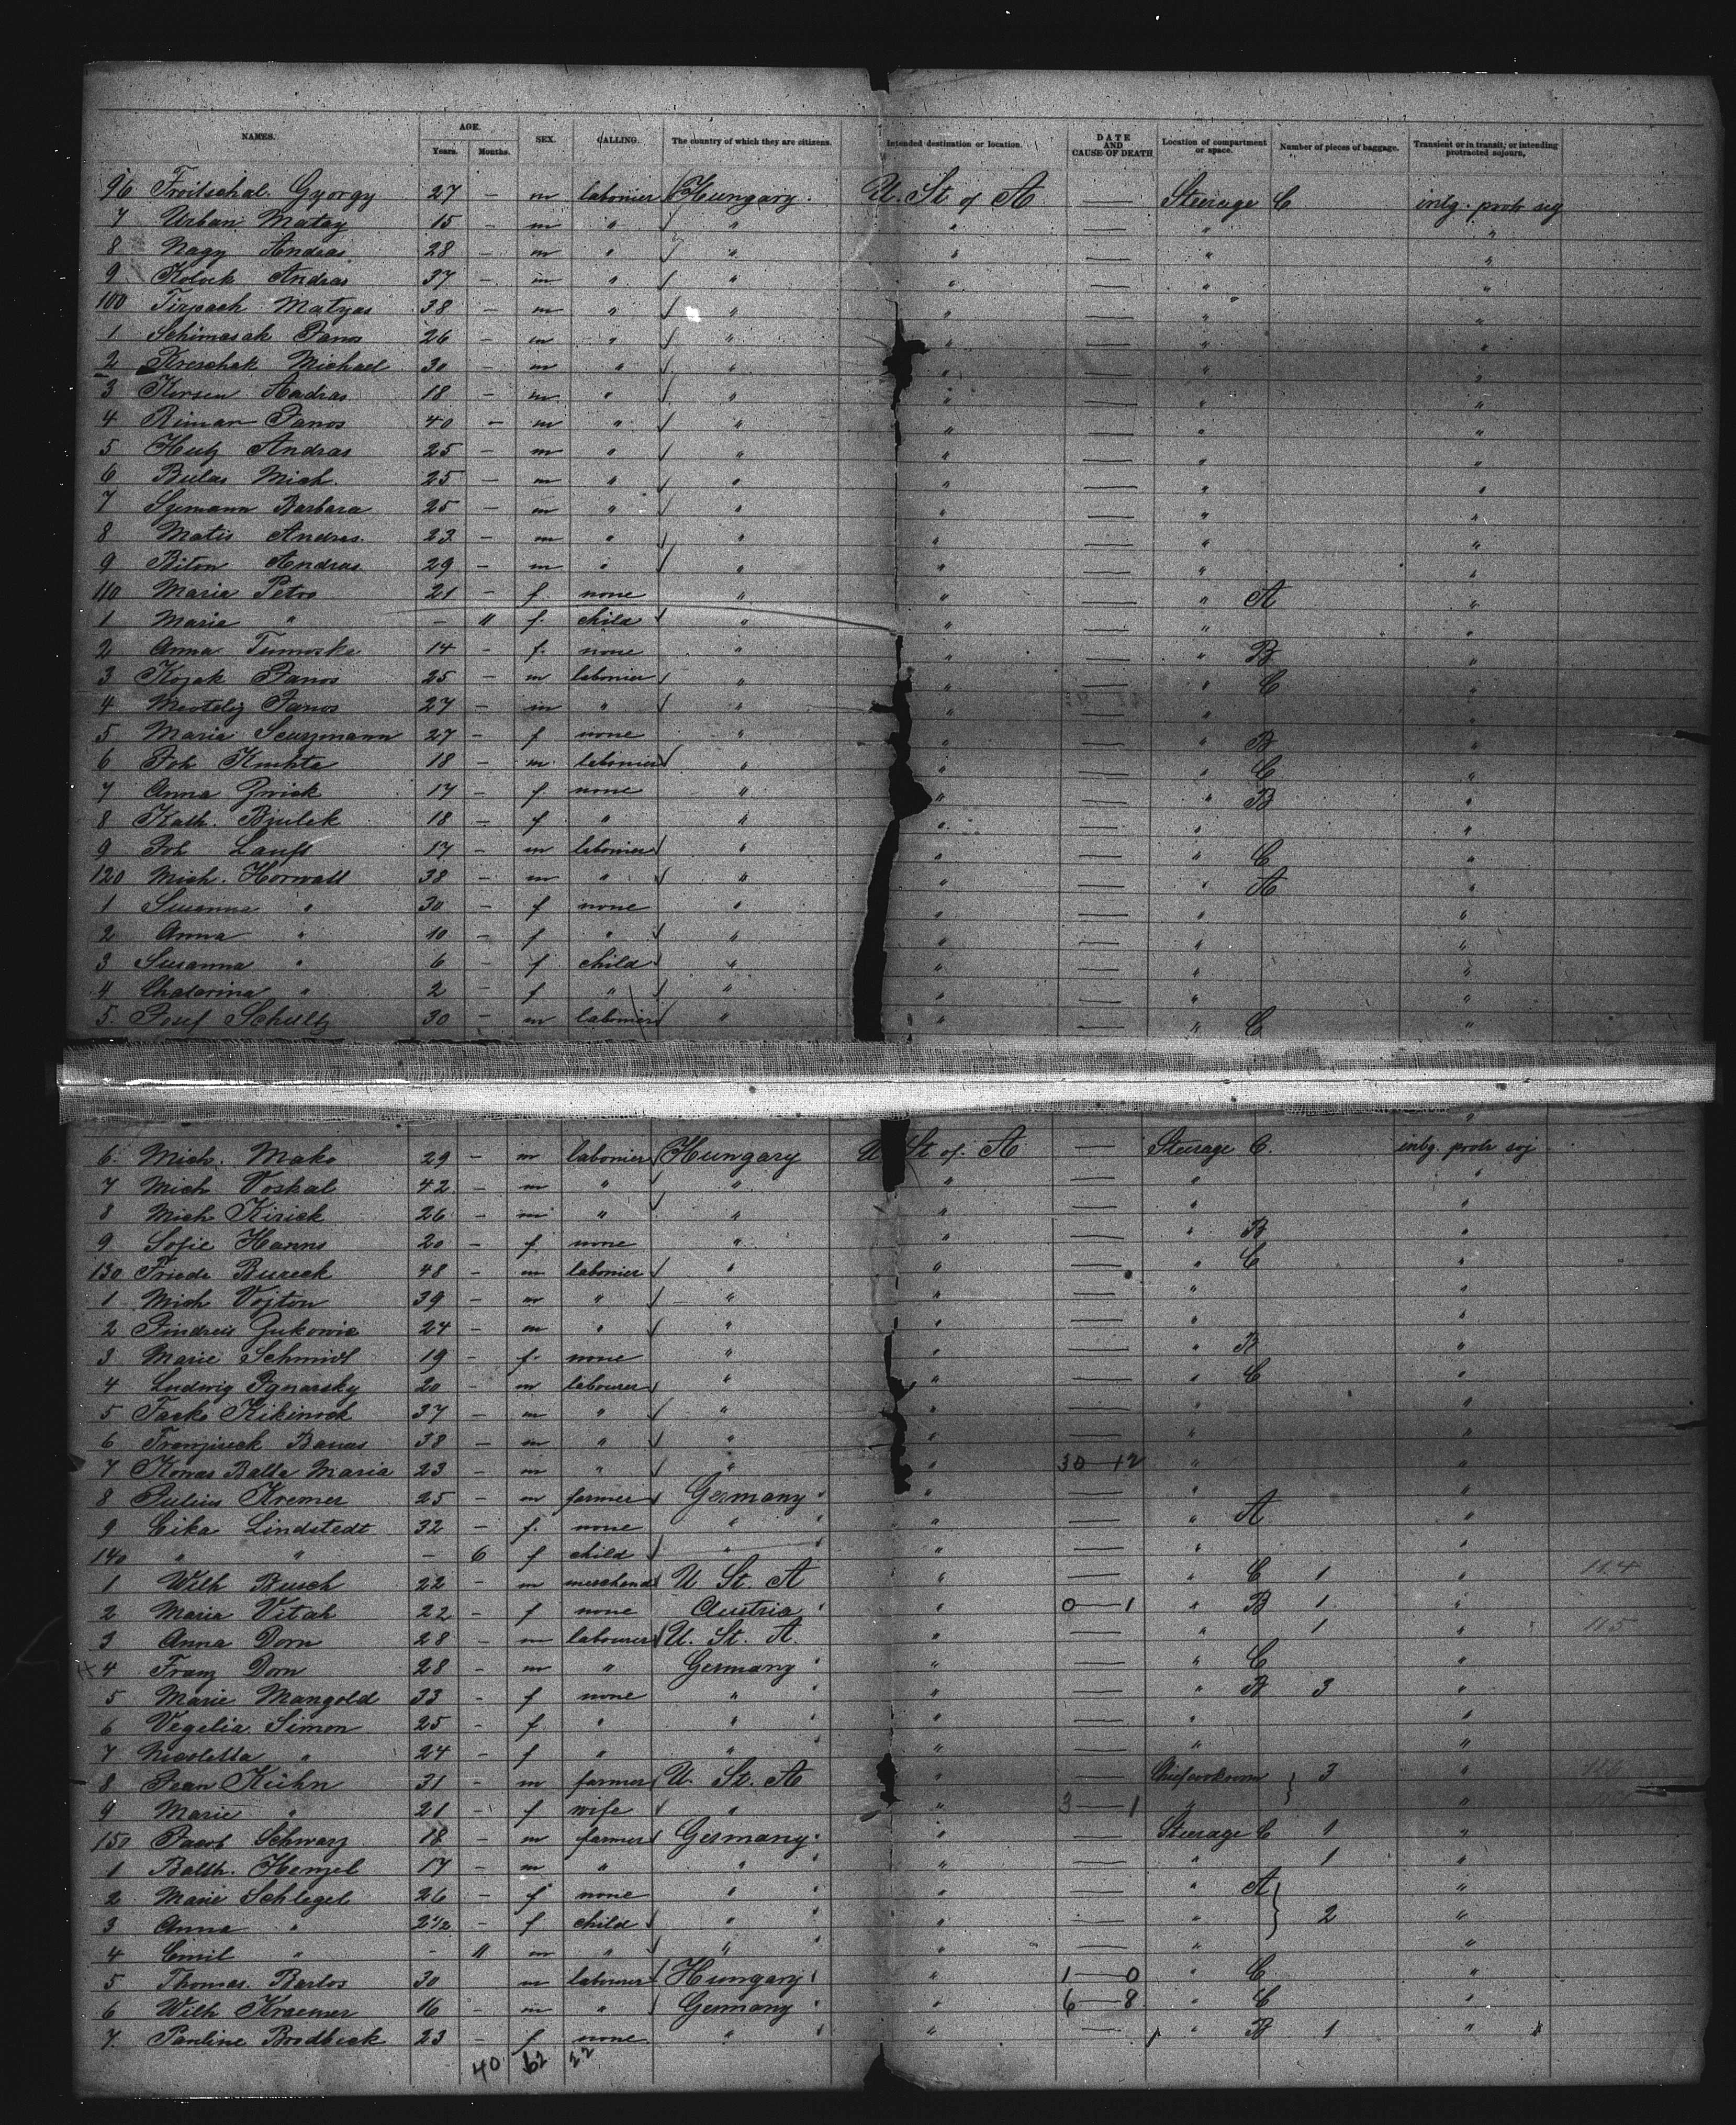 NAMES. AGE. Years. Months. SEX. CALLING. The country of which they are citizens. Intended destination or location. DATE AND CAUSE OF DEATH Location of compartment or space. Number of pieces of baggage. Transient or in transit, or intending protracted sojourn.
96 Froitschal Gyorgy 27 — m labonier Hungary. U. St of A — Steerage C intg. protr soj
7 Urban Matay 15 - m " " " — " "
8 Nagy Andras 28 - m " " " — " "
9 Kolock Andras 37 - m " " " — " "
100 Tirpach Matyas 38 - m " " " — " "
1 Schimasak Janos 26 - m " " " — " "
2 Kreschak Michael 30 - m " " " — " "
3 Korsen Andras 18 - m " " " — " "
4 Rimar Janos 40 - m " " " — " "
5 Hutz Andras 25 - m " " " — " "
6 Bulas Mich. 25 - m " " " — " "
7 Szemann Barbara 25 - m " " " — " "
8 Matis Andras 23 - m " " " — " "
9 Biton Andras 29 - m " " " — " "
110 Maria Petro 21 - f. none " " — " A "
1 Maria " - 11 f. child " " — " "
2 Anna Tumoska 14 - f. none " " — " B "
3 Kozak Janos 25 - m labonier " " — " C "
4 Janos 27 - m " " " — " "
5 Maria 27 - f none " " — " B "
6 Joh Kuchta 18 - m labonier " " — " C "
7 Anna Zwick 17 - f. none " " — " B "
8 Kath. Bjulek 18 - f " " " — " "
9 Joh Laufs 17 - m labonier " " — " C "
120 Mich. Horwatt 38 - m " " " — " A "
1 Susanna " 30 - f none " " — " "
2 Anna " 10 - f " " " — " "
3 Susanna " 6 - f child " " — " "
4 Chatarina " 2 - f " " " — " "
5. Josef Schultz 30 - m labonier " " — " C "
6. Mich. Mako 29 - m labonier Hungary U St of. A — Steerage C. intg. protr soj
7 Mich Voskal 42 - m " " " — " "
8 Mich Kirick 26 - m " " " — " "
9 Sofie Hanns 20 - f none " " — " B "
130 Friede Bureck 48 - m labonier " " — " C "
1 Mich Vojton 39 - m " " " — " "
2 Zukowic 24 - m " " " — " "
3 Marie Schmidt 19 - f. none " " — " B "
4 Ludwig Ignarsky 20 - m labourer " " — " C "
5 Jacko Kikinock 37 - m " " " — " "
6 Franzisek Banas 38 - m " " " — " "
7 Kowas Balla Maria 23 - m " " " 30—12 " "
8 Julius Kremer 25 - m farmer Germany " — " "
9 Lindstedt 32 - f. none " " — " A "
140 " " - 6 f child " " — " "
1 Wilh Busch 22 - m merchand U St. A " — " C 1 " 114
2 Maria Vitah 22 - f none Austria " 0—1 " B 1 "
3 Anna Dorn 28 - m labourer U. St. A. " — " 1 " 115
4 Franz Dorn 28 - m " Germany " — " C "
5 Marie Mangold 33 - f none " " — " B 3 "
6 Vegelia Simon 25 - f " " " — " "
7 Nicoletta " 24 - f " " " — " "
8 Jean Kühn 31 - m farmer U. St. A " — Chiefcookroom } 3 "
9 Marie " 21 - f wife " " 3—1 " "
150 Jacob Schwarz 18 - m farmer Germany " — Steerage C 1 "
1 Balth. Henzel 17 - m " " " — " 1 "
2 Marie Schlegel 26 - f none " " — " A } "
3 Anna " 2 1/2 - f child " " — " 2 "
4 Emil " - 11 m " " " — " "
5 Thomas Bartos 30 m labourer Hungary " 1—0 " C "
6 Wilh Kraemer 16 - m " Germany " 6—8 " C "
7. Pauline Brodbeck 23 - f none " " — " B 1 "
40 62 22